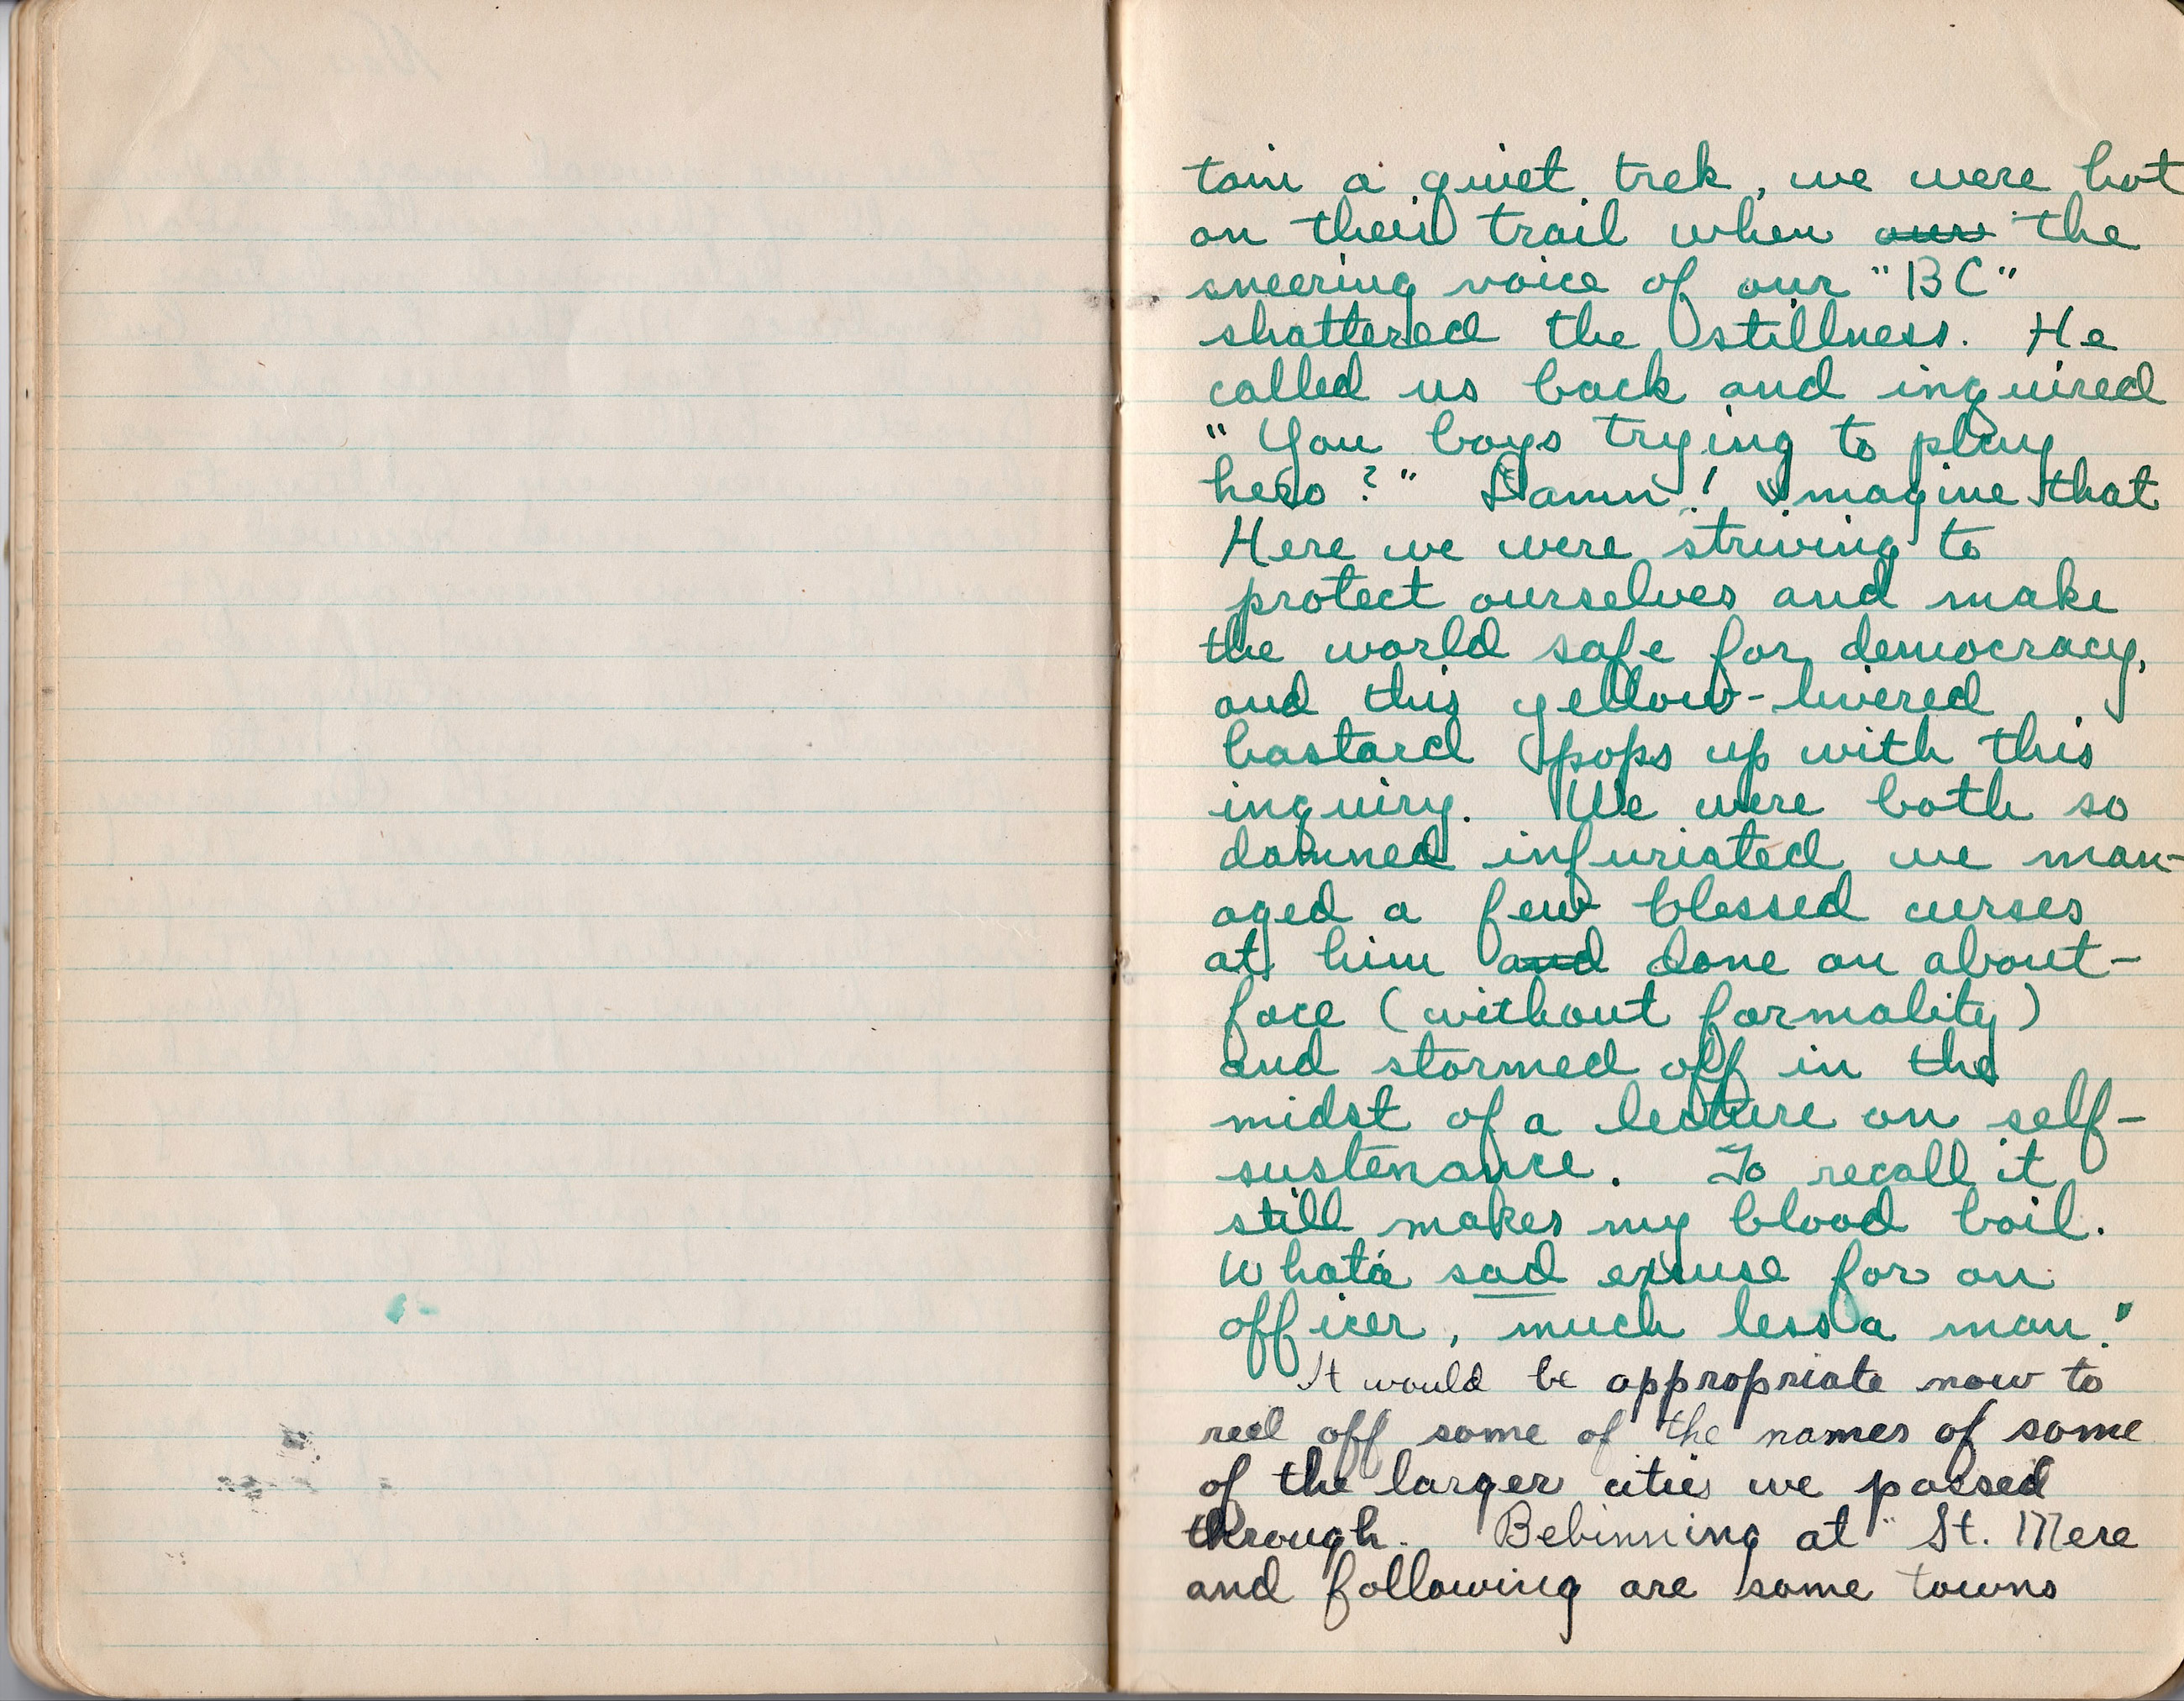 tain a quiet trek, we were hot
on their trail when our the
sneering voice of our "BC"
shattered the stillness. He
called us back and inquired
"You boys trying to play
hero?" Damn! Imagine that
Here we were striving to
protect ourselves and make
the world safe for democracy,
and this yellow-livered
bastard pops up with this
inquiry. We were both so
damned infuriated we man-
aged a few blessed curses
at him and done an about-
face (without formality)
and stormed off in the
midst of a lecture on self-
sustenance. To recall it
still makes my blood boil.
What a sad excuse for an
officer, much less a man!
It would be appropriate now to
reel off some of the names of some
of the larger cities we passed
through. Bebinning at "St. Mere
and following are some towns